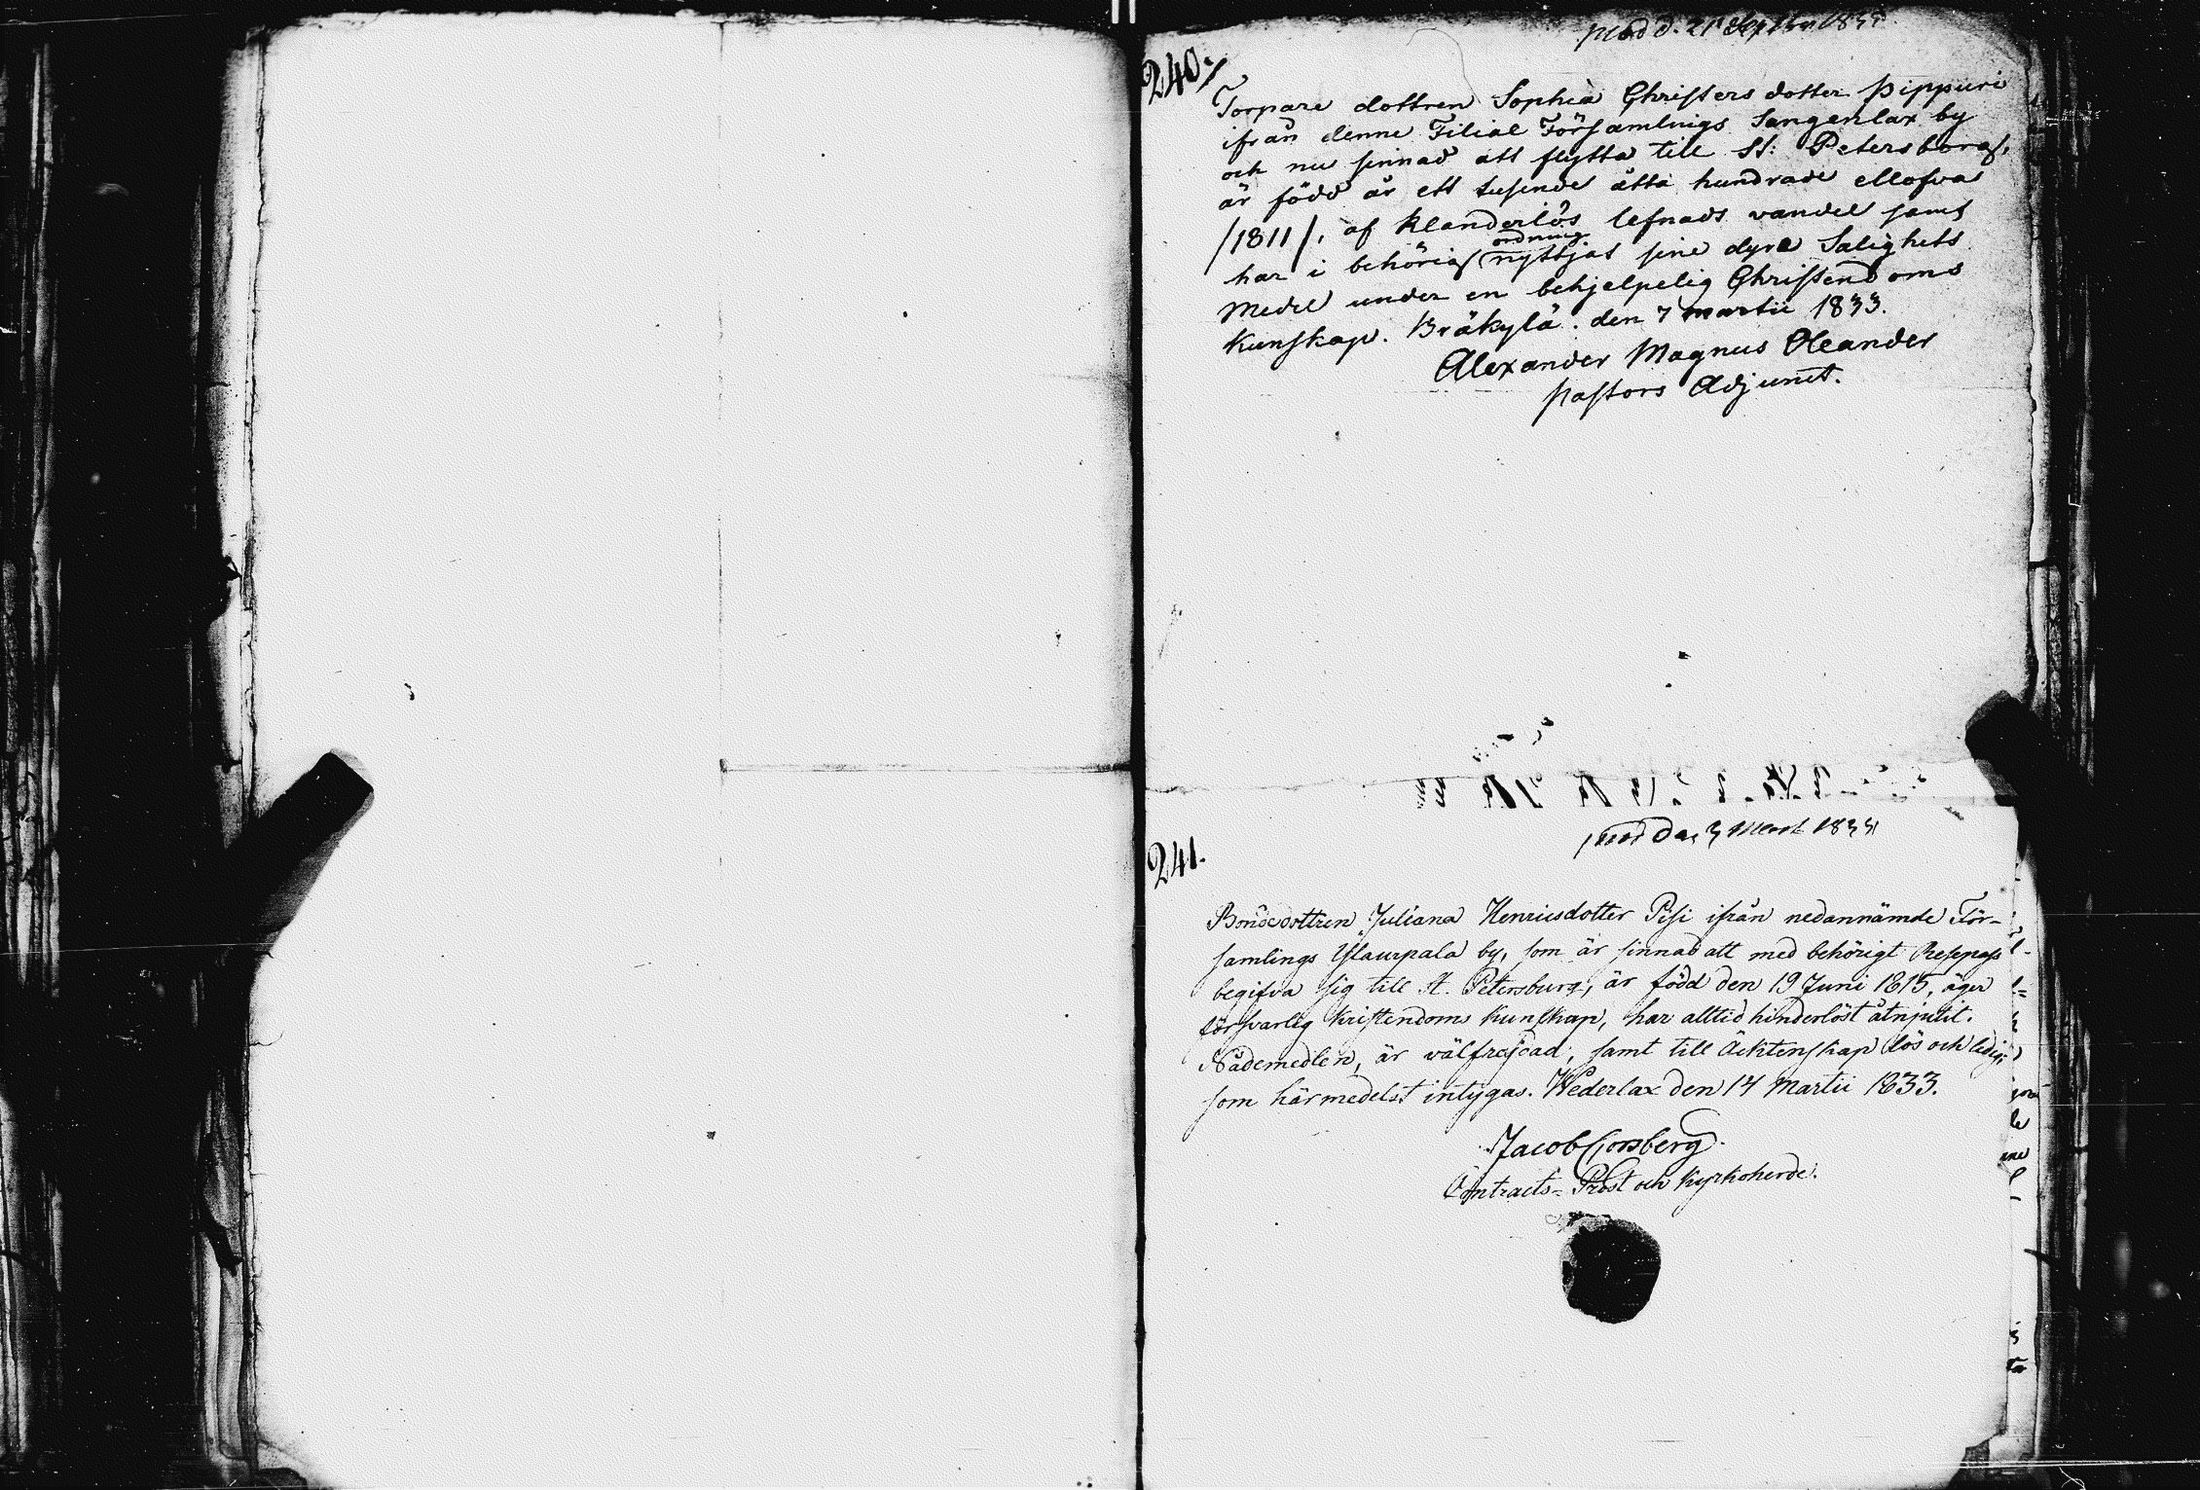 prod d. 21 Septber 1833
240./
Torpare dottren Sophia Christers dotter Pippuri
ifrån denne Filial Församlings Sangenlax by
och nu sinnad att flytta till St: Petersborg,
är född år ett tusende åtta hundrade ellofva
/1811/, af klanderlös lefnads vandel samt
har i behörig ordning nyttjat sine dyra Salighets
medel under en behjelpelig Christendoms
Kunskap. Bräkylä. den 7 martii 1833.
Alexander Magnus Oleander
Pastors Adjunct.
1833
241.
Bondedottren Juliana Henricsdotter Pesi ifrån nedannämde För-
samlings Yläurpala by, som är sinnad att med behörigt Resepass
begifva sig till St. Petersburg, är född den 19 Juni 1815, äger
försvarlig Kristendoms Kunskap, har alltid hinderlöst åtnjutit
Nådemedlen, är välfrejdad, samt till Äcktenskap lös och ledig;
som härmedelst intygas. Wederlax den 14 Martii 1833.
Jacob Forsberg
Contracts-Prost och Kyrkoherde.